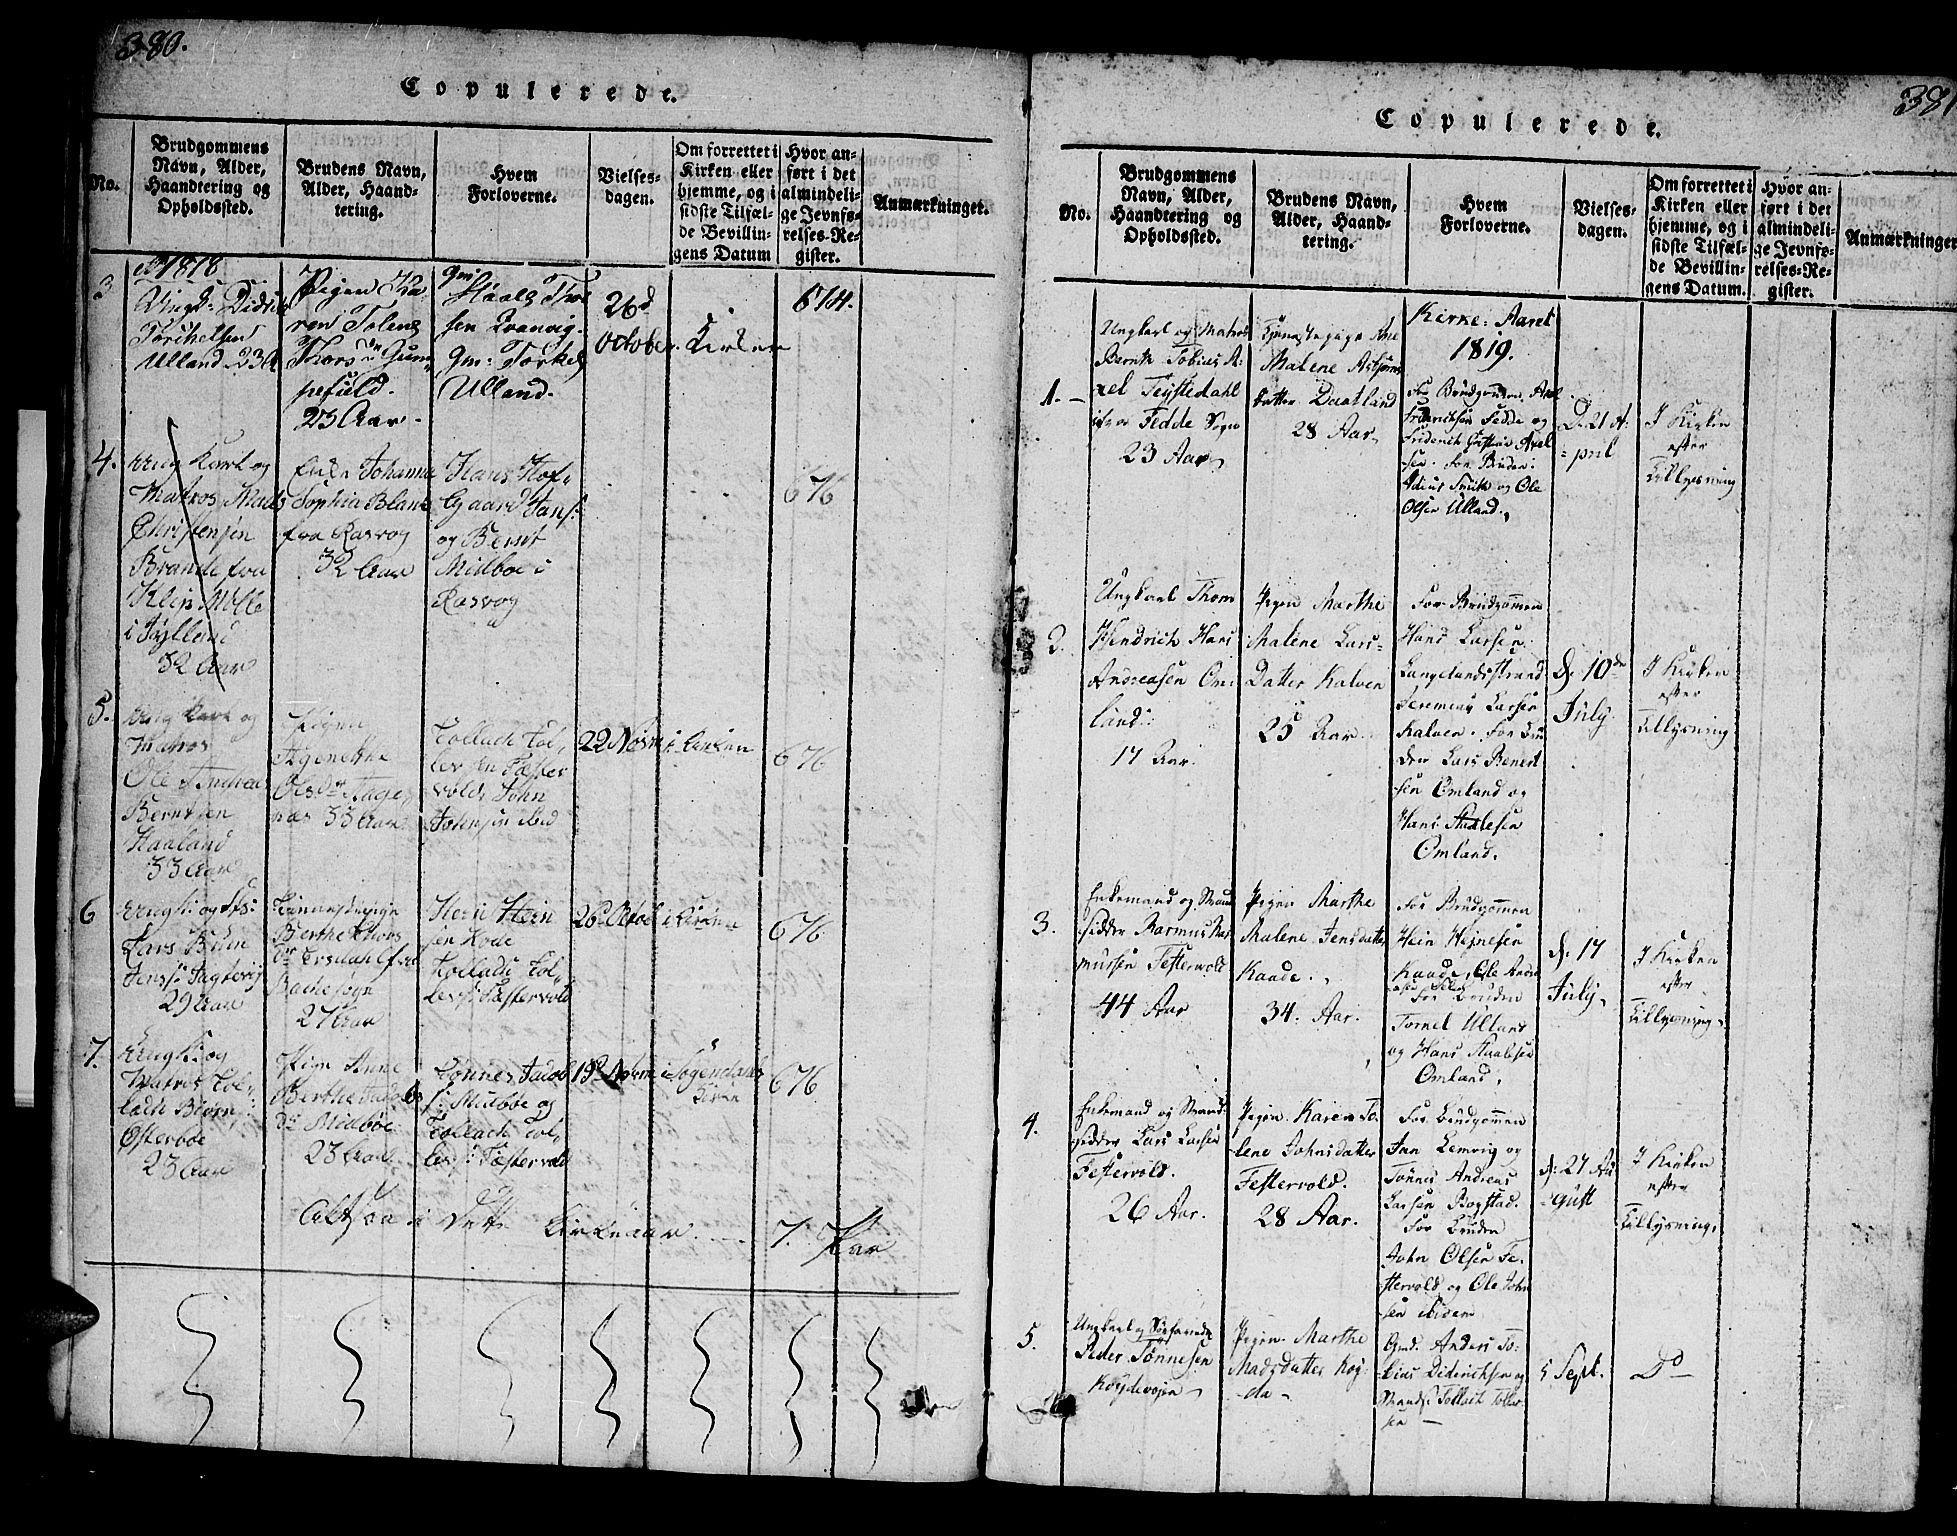 380.
Copulerede.
No.
Brudgommens
Navn, Alder,
Haandtering og
Opholdssted.
Brudens Navn,
Alder, Haand-
tering.
Hvem
Forloverne.
Vielses-
dagen.
Om forrettet i
Kirken eller
hjemme, og i
sidste Tilfæl-
de Bevillin-
gens Datum
Hvor an-
ført i det
almindeli-
ge Jevnfø-
relses-Re-
gister.
Anmærkninger.
1818
3
Ungk: Didrik
Torchelsen
Ulland 23 A
Pigen Ka-
ren Tolena
Thors
23 Aar.
Gm
Staale Thor
sen Qvanvig.
Gm: Torkel
Ulland.
26d
October
Kirken
674.
4.
Ung Karl og
Matros Mads
Christensen
Brande fra
Klein Mölle
i Jylland
32 Aar
Enke Johanne
Sophia Blanc
fra Rasvog
32 Aar
Hans Hof-
Gaard Jans:
og Berent
Midboe i
Rasvog
676
5.
Ung Karl og
Matros
Ole Andreas
Berntsen
Haaland
33 Aar
Pigen
Agenethe
Olsdr
33 Aar
Tollach Tol-
levsen Fæster
vold, John
Johnsen ibid
22 Novm
i Kirken
676
6
Ungk: og
Lars
Jens:
29 Aar
Berthe Thors
dr
27 Aar
Hein Hein
sen Kode
Tollach Tol-
levs: Fæstervold
26 Octob
i Kirken
676
7.
Ungk: og
Matros Tol-
lach Biørn
Østerboe
23 Aar
Pigen Anne
Berthe Jacobs
dr Midboe
23 Aar
Tönnes Jacob
s: Midboe og
Tollach Tol-
levs: Fæstervold
19d Novm
i Sogendals
Kirke
676
Altsaa i dette Kirkeaar. 7. Par
381
Copulerede.
No.
Brudgommens
Navn, Alder,
Haandtering og
Opholdssted.
Brudens Navn,
Alder, Haand-
tering.
Hvem
Forloverne.
Vielses-
dagen.
Om forrettet i
Kirken eller
hjemme, og i
sidste Tilfæl-
de Bevillin-
gens Datum.
Hvor an-
ført i det
almindeli-
ge Jevnfø-
relses-Re-
gister.
Anmærkninger
Kirke: Aaret
1819.
1.
Ungkarl og Matros
Bernt Tobias A-
xel Feystedahl
Fedde Sogn
23 Aar
Tjenestepige Ane
Malene Asbjørns
datter Daatland
28 Aar
For Brudgommen Axel
Fridericksen Fedde og
Friderich Gustav Axel
sen. For Bruden:
Smith og Ole
Olsen Ulland.
D. 21 A-
pril
I Kirken
efter
Tillysning
2.
Ungkarl Thom
Hendrich Hans
Andreasen Om-
land:
17 Aar
Pigen Marthe
Malene Lars-
Datter Kalven
25 Aar
For Brudgommen
Hans Larsen
Langelandsstrand
Jeremias Larsen
Kalven. For Bru
den Lars Berent
sen Omland og
Hans Staalesen
Omland.
D. 10de
July.
I Kirken
efter
Tillysning
3.
Enkemand og Strand
sidder Rasmus Ras-
mussen Festervold
44 Aar
Pigen Marthe
Malene Jensdatter
Kaade.
34. Aar.
For Brudgommen
Hein Heinesen
Kaade, Ole Andre
For Bruden
Tornel Ulland
og Hans Staalesen
Omland,
D: 17
July.
I Kirken
efter
Tillysning.
4.
Enkemand og Strand-
sidder Lars Larsen
Festervold.
26 Aar.
Pigen Karen To-
lene Johnsdatter
Festervold.
28 Aar.
For Brudgommen
Jan Lemvig og
Tönnes Andreas
Larsen Bogstad.
For Bruden
John Olsen Fe-
stervold og Ole John
sen ibidem
D: 27 Au
gust
I Kirken
efter
Tillysning.
5.
Ungkarl og Søefarende
Peder Tønnesen
Pigen Marthe
Madsdatter Rog-
da
Gmd. Anders To-
bias Didrichsen og
Strands: Tollach Tollev
sen
5 Sept.
Do